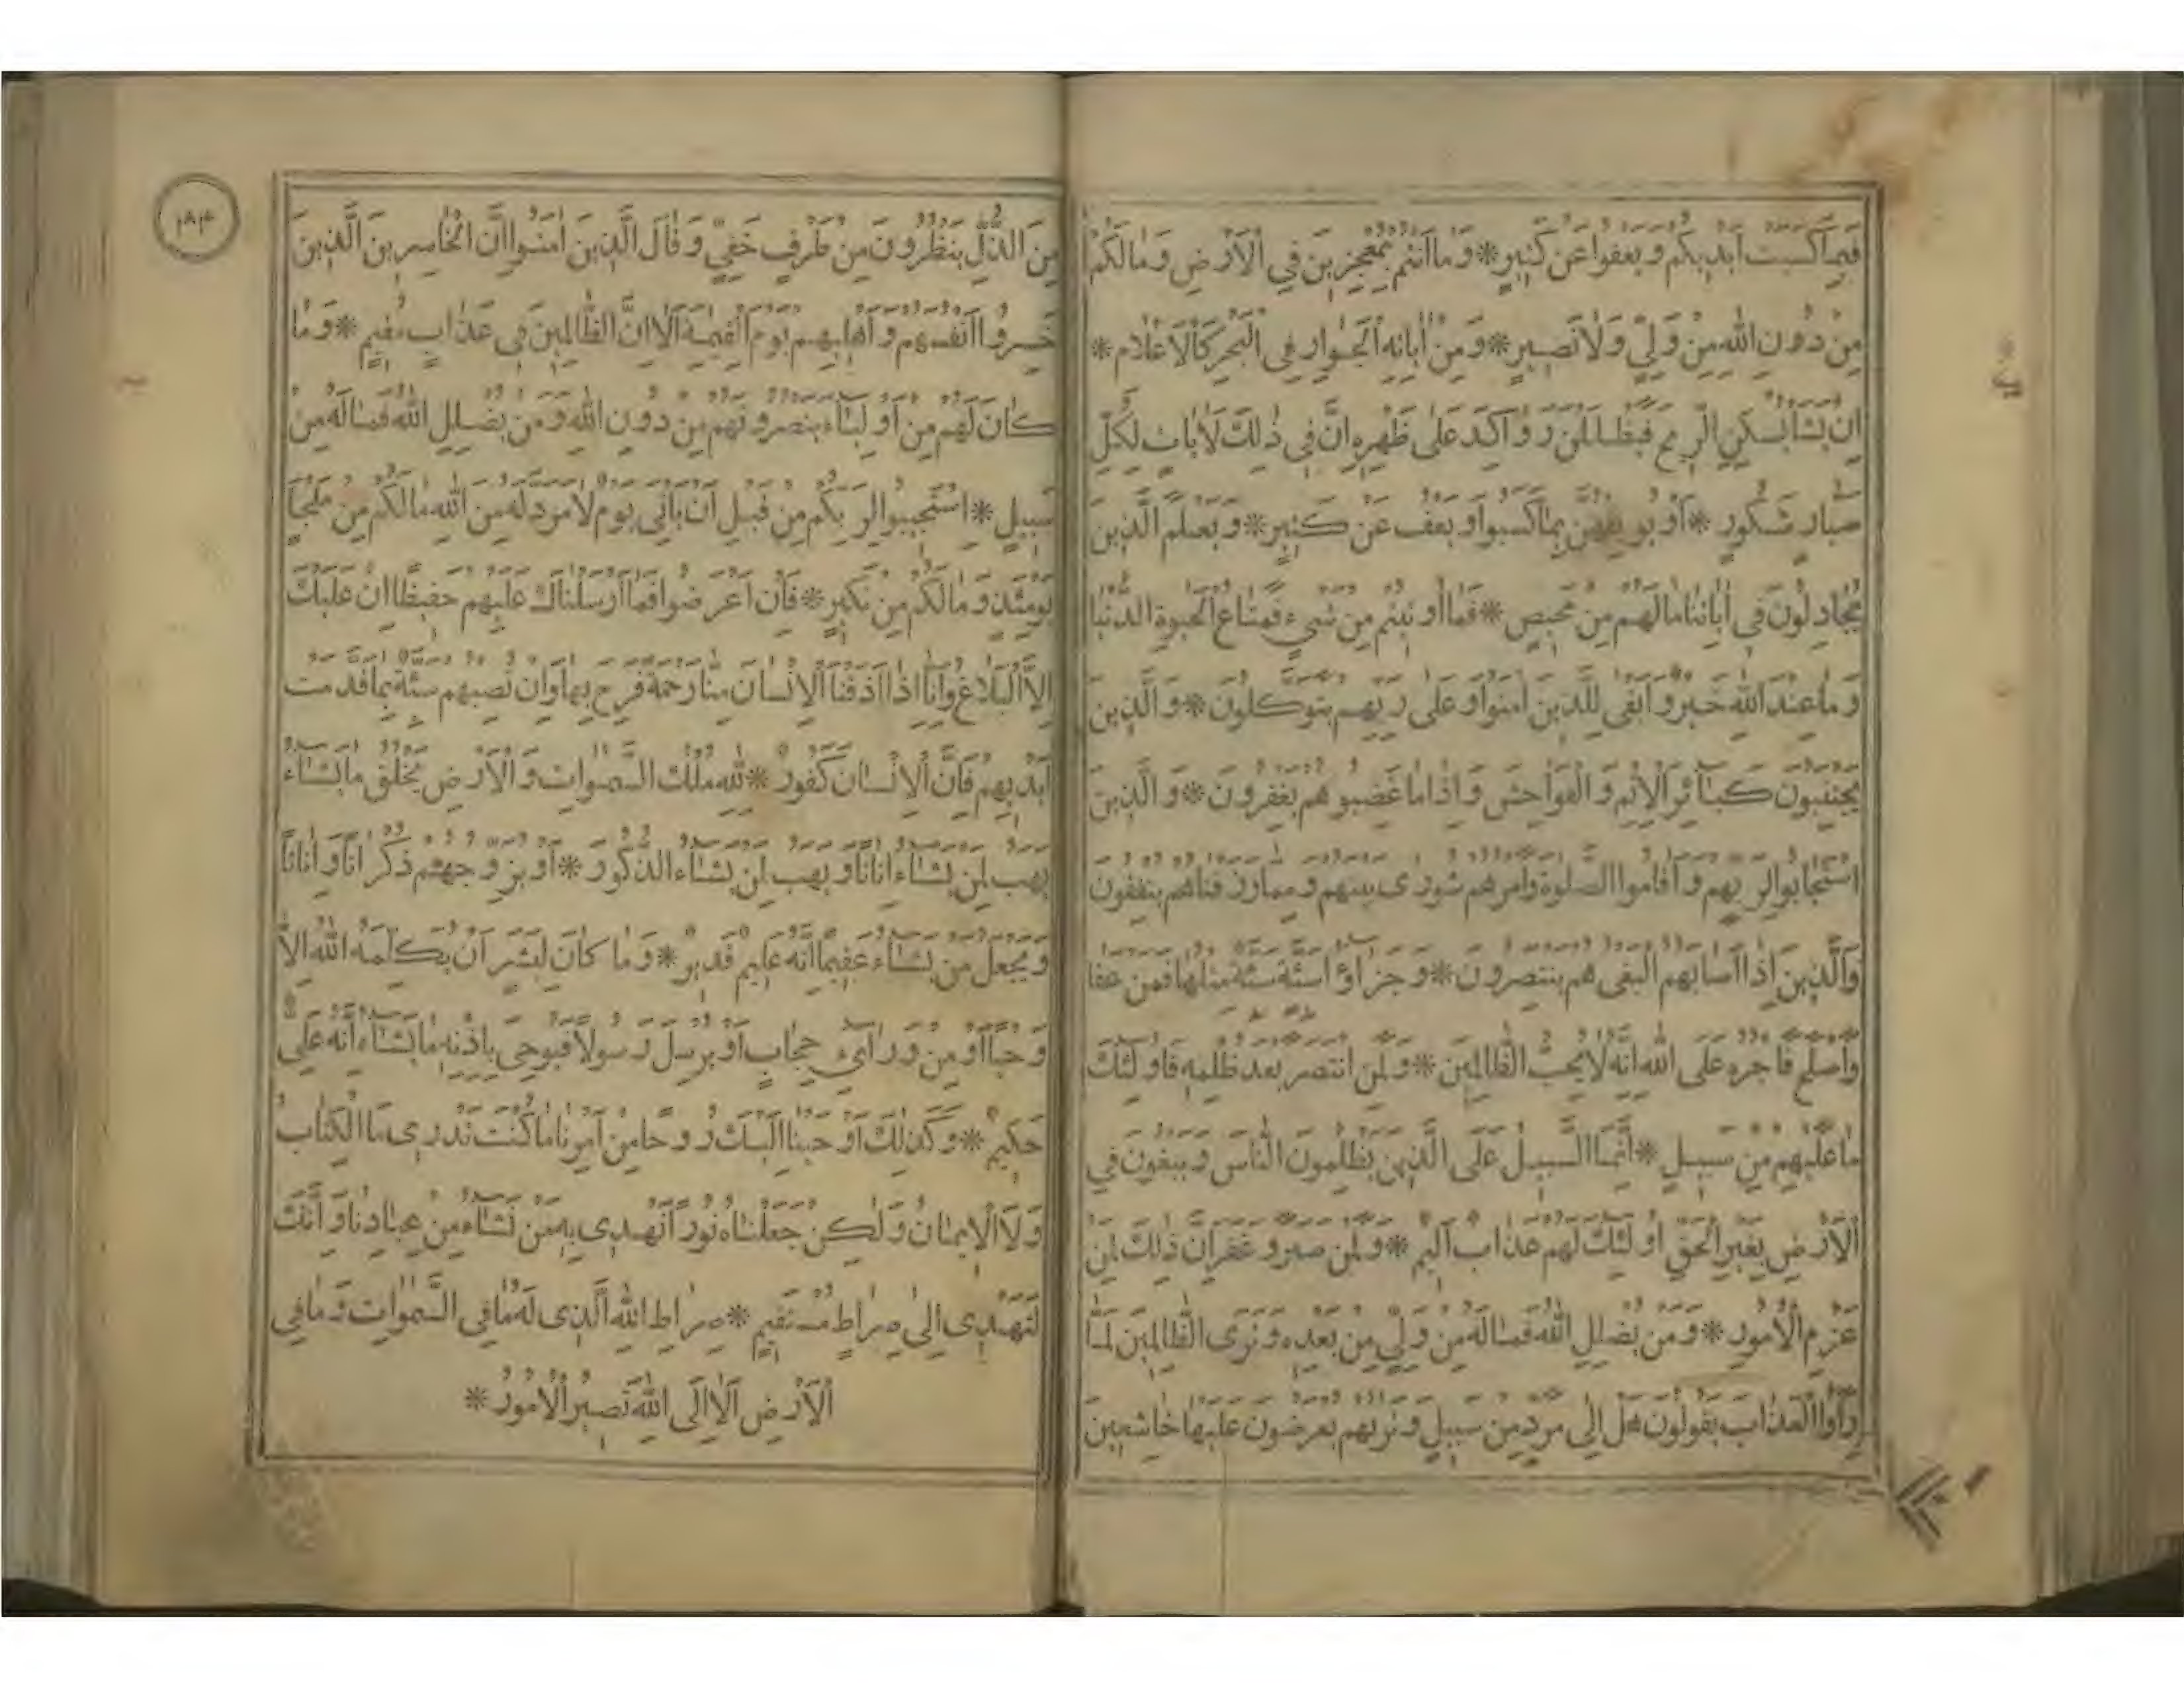 فَبِمَا كَسَبَتْ أَيْدِيكُمْ وَيَعْفُوا عَنْ كَثِيرٍ * وَمَا أَنْتُمْ بِمُعْجِزِينَ فِي الْأَرْضِ وَمَا لَكُمْ
مِنْ دُونِ اللّٰهِ مِنْ وَلِيٍّ وَلَا نَصِيرٍ * وَمِنْ اٰيَاتِهِ الْجَوَارِ فِي الْبَحْرِ كَالْأَعْلَامِ *
إِنْ يَشَأْ يُسْكِنِ الرِّيحَ فَيَظْلَلْنَ رَوَاكِدَ عَلَى ظَهْرِهِ إِنَّ فِي ذٰلِكَ لَاٰيَاتٍ لِكُلِّ
صَبَّارٍ شَكُورٍ * أَوْ يُوبِقْهُنَّ بِمَا كَسَبُوا وَيَعْفُ عَنْ كَثِيرٍ * وَيَعْلَمَ الَّذِينَ
يُجَادِلُونَ فِي اٰيَاتِنَا مَا لَهُمْ مِنْ مَحِيصٍ * فَمَا أُوتِيتُمْ مِنْ شَيْءٍ فَمَتَاعُ الْحَيٰوةِ الدُّنْيَا
وَمَا عِنْدَ اللّٰهِ خَيْرٌ وَأَبْقَى لِلَّذِينَ اٰمَنُوا وَعَلَى رَبِّهِمْ يَتَوَكَّلُونَ * وَالَّذِينَ
يَجْتَنِبُونَ كَبَائِرَ الْإِثْمِ وَالْفَوَاحِشَ وَإِذَا مَا غَضِبُوا هُمْ يَغْفِرُونَ * وَالَّذِينَ
اسْتَجَابُوا لِرَبِّهِمْ وَأَقَامُوا الصَّلٰوةَ وَأَمْرُهُمْ شُورَى بَيْنَهُمْ وَمِمَّا رَزَقْنَاهُمْ يُنْفِقُونَ
وَالَّذِينَ إِذَا أَصَابَهُمُ الْبَغْيُ هُمْ يَنْتَصِرُونَ * وَجَزَاؤُا سَيِّئَةٍ سَيِّئَةٌ مِثْلُهَا فَمَنْ عَفَا
وَأَصْلَحَ فَأَجْرُهُ عَلَى اللّٰهِ إِنَّهُ لَا يُحِبُّ الظَّالِمِينَ * وَلَمَنِ انْتَصَرَ بَعْدَ ظُلْمِهِ فَأُولٰئِكَ
مَا عَلَيْهِمْ مِنْ سَبِيلٍ * إِنَّمَا السَّبِيلُ عَلَى الَّذِينَ يَظْلِمُونَ النَّاسَ وَيَبْغُونَ فِي
الْأَرْضِ بِغَيْرِ الْحَقِّ أُولٰئِكَ لَهُمْ عَذَابٌ أَلِيمٌ * وَلَمَنْ صَبَرَ وَغَفَرَ إِنَّ ذٰلِكَ لَمِنْ
عَزْمِ الْأُمُورِ * وَمَنْ يُضْلِلِ اللّٰهُ فَمَا لَهُ مِنْ وَلِيٍّ مِنْ بَعْدِهِ وَتَرَى الظَّالِمِينَ لَمَّا
رَأَوُا الْعَذَابَ يَقُولُونَ هَلْ إِلَى مَرَدٍّ مِنْ سَبِيلٍ وَتَرٰيهُمْ يُعْرَضُونَ عَلَيْهَا خَاشِعِينَ
١٨٤
مِنَ الذُّلِّ يَنْظُرُونَ مِنْ طَرْفٍ خَفِيٍّ وَقَالَ الَّذِينَ اٰمَنُوا إِنَّ الْخَاسِرِينَ الَّذِينَ
خَسِرُوا أَنْفُسَهُمْ وَأَهْلِيهِمْ يَوْمَ الْقِيٰمَةِ أَلَا إِنَّ الظَّالِمِينَ فِي عَذَابٍ مُقِيمٍ * وَمَا
كَانَ لَهُمْ مِنْ أَوْلِيَاءَ يَنْصُرُونَهُمْ مِنْ دُونِ اللّٰهِ وَمَنْ يُضْلِلِ اللّٰهُ فَمَا لَهُ مِنْ
سَبِيلٍ * اسْتَجِيبُوا لِرَبِّكُمْ مِنْ قَبْلِ أَنْ يَأْتِيَ يَوْمٌ لَا مَرَدَّ لَهُ مِنَ اللّٰهِ مَا لَكُمْ مِنْ مَلْجَأٍ
يَوْمَئِذٍ وَمَا لَكُمْ مِنْ نَكِيرٍ * فَإِنْ أَعْرَضُوا فَمَا أَرْسَلْنَاكَ عَلَيْهِمْ حَفِيظًا إِنْ عَلَيْكَ
إِلَّا الْبَلَاغُ وَإِنَّا إِذَا أَذَقْنَا الْإِنْسَانَ مِنَّا رَحْمَةً فَرِحَ بِهَا وَإِنْ تُصِبْهُمْ سَيِّئَةٌ بِمَا قَدَّمَتْ
أَيْدِيهِمْ فَإِنَّ الْإِنْسَانَ كَفُورٌ * لِلّٰهِ مُلْكُ السَّمٰوَاتِ وَالْأَرْضِ يَخْلُقُ مَا يَشَاءُ
يَهَبُ لِمَنْ يَشَاءُ إِنَاثًا وَيَهَبُ لِمَنْ يَشَاءُ الذُّكُورَ * أَوْ يُزَوِّجُهُمْ ذُكْرَانًا وَإِنَاثًا
وَيَجْعَلُ مَنْ يَشَاءُ عَقِيمًا إِنَّهُ عَلِيمٌ قَدِيرٌ * وَمَا كَانَ لِبَشَرٍ أَنْ يُكَلِّمَهُ اللّٰهُ إِلَّا
وَحْيًا أَوْ مِنْ وَرَائِ حِجَابٍ أَوْ يُرْسِلَ رَسُولًا فَيُوحِيَ بِإِذْنِهِ مَا يَشَاءُ إِنَّهُ عَلِيٌّ
حَكِيمٌ * وَكَذٰلِكَ أَوْحَيْنَا إِلَيْكَ رُوحًا مِنْ أَمْرِنَا مَا كُنْتَ تَدْرِي مَا الْكِتَابُ
وَلَا الْإِيمَانُ وَلٰكِنْ جَعَلْنَاهُ نُورًا نَهْدِي بِهِ مَنْ نَشَاءُ مِنْ عِبَادِنَا وَإِنَّكَ
لَتَهْدِي إِلَى صِرَاطٍ مُسْتَقِيمٍ * صِرَاطِ اللّٰهِ الَّذِي لَهُ مَا فِي السَّمٰوَاتِ وَمَا فِي
الْأَرْضِ أَلَا إِلَى اللّٰهِ تَصِيرُ الْأُمُورُ *